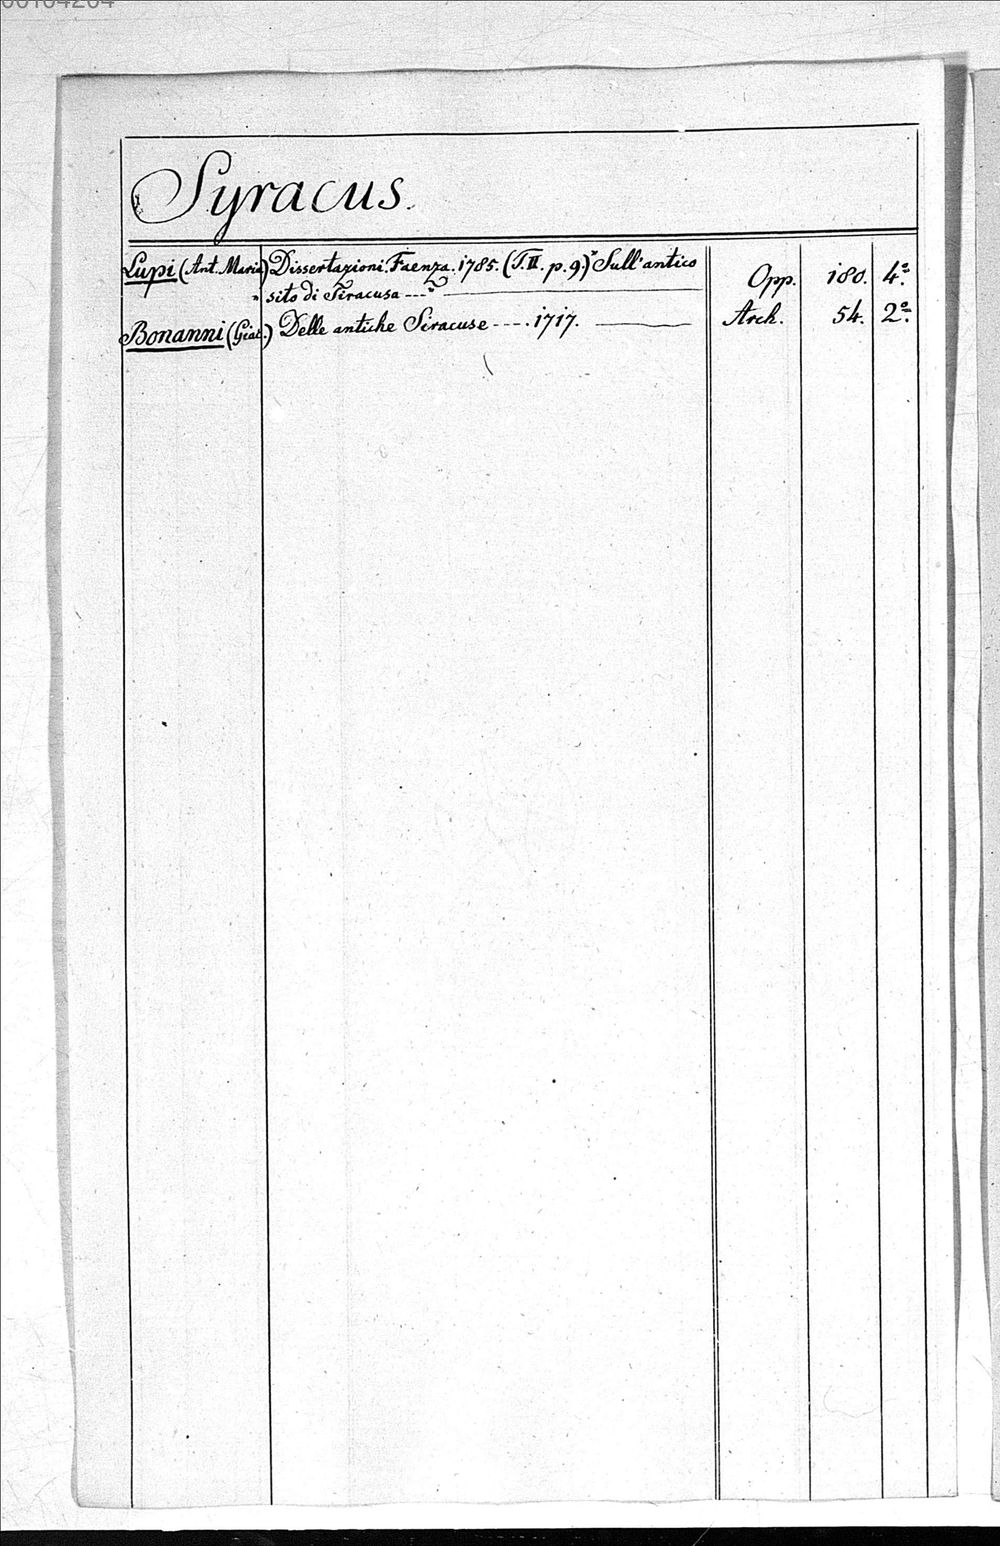 Syracus.
Lupi (Ant. Maria) Dissertazioni. Faenza. 1785. (T. II. p. 9.) "Sull'antico Opp. 180. 4º.
" sito di Siracusa ---"
Bonanni (Giac.) Delle antiche Siracuse ----. 1717. Arch. 54. 2º.